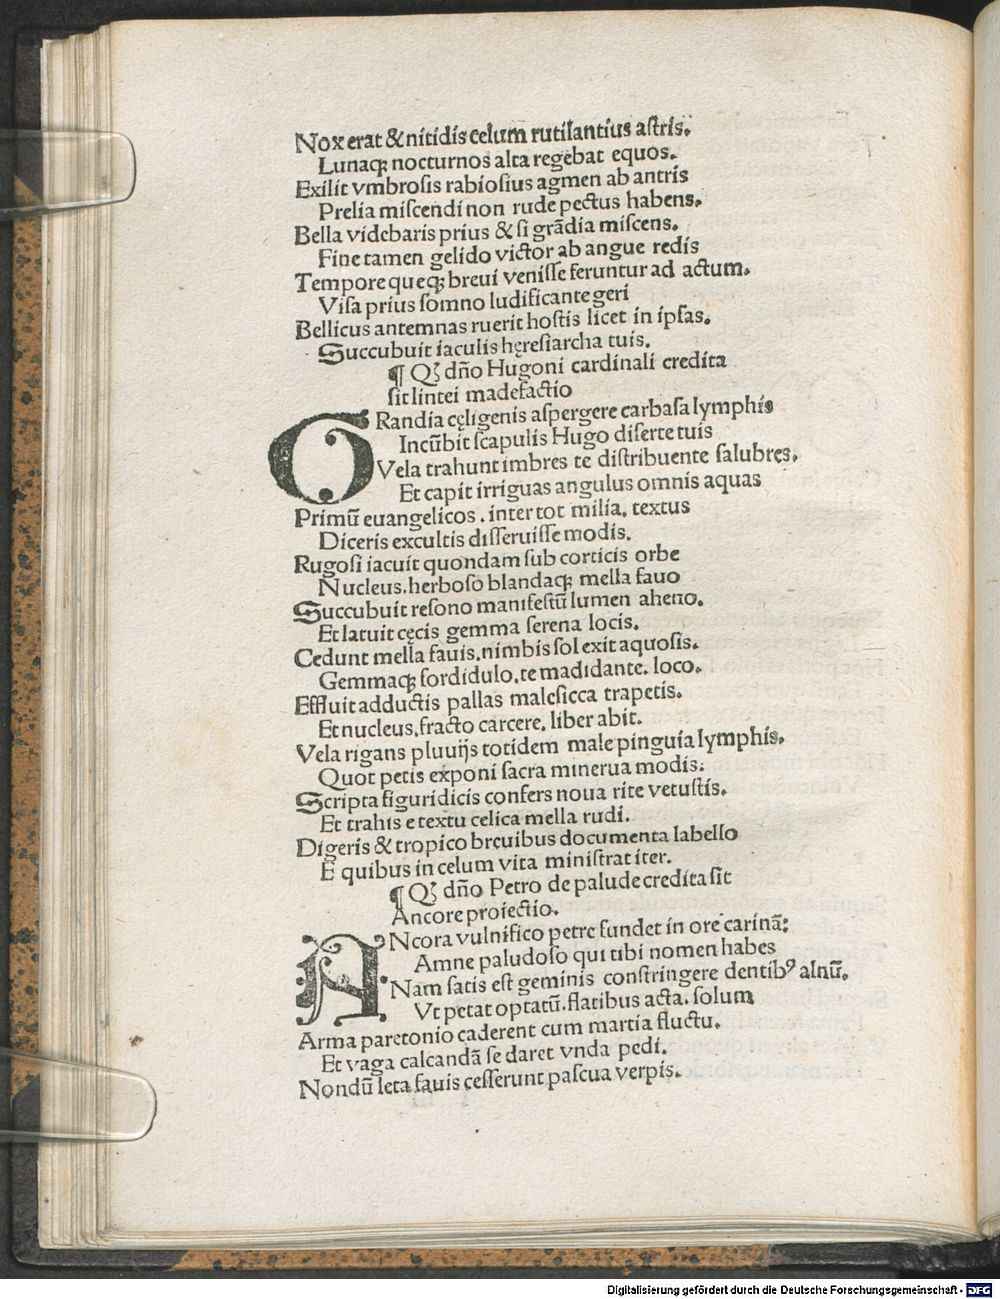 Nox erat & nitidis celum rutilantius astris.
Lunaqꝫ nocturnos alta regebat equos.
Exilit vmbrosis rabiosius agmen ab antris
Prelia miscendi non rude pectus habens.
Bella videbaris prius & si grãdia miscens.
Fine tamen gelido victor ab angue redis
Tempore queqꝫ breui venisse feruntur ad actum.
Visa prius somno ludificante geri
Bellicus antemnas ruerit hostis licet in ipsas.
Succubuit iaculis hęresiarcha tuis.
¶ Qꝫ dño Hugoni cardinali credita
sit lintei madefactio
GRandia cęligenis aspergere carbasa lymphis
Incũbit scapulis Hugo diserte tuis
Vela trahunt imbres te distribuente salubres.
Et capit irriguas angulus omnis aquas
Primũ euangelicos . inter tot milia. textus
Diceris excultis disseruisse modis.
Rugosi iacuit quondam sub corticis orbe
Nucleus. herboso blandaqꝫ mella fauo
Succubuit resono manifestũ lumen aheno.
Et latuit cęcis gemma serena locis.
Cedunt mella fauis. nimbis sol exit aquosis.
Gemmaqꝫ sordidulo. te madidante. loco.
Effluit adductis pallas malesicca trapetis.
Et nucleus. fracto carcere. liber abit.
Vela rigans pluuijs totidem male pinguia lymphis.
Quot petis exponi sacra minerua modis:
Scripta figuridicis confers noua rite vetustis.
Et trahis e textu celica mella rudi.
Digeris & tropico breuibus documenta labello
E quibus in celum vita ministrat iter.
¶ Qꝫ dño Petro de palude credita sit
Ancore proiectio.
ANcora vulnifico petre fundet in ore carinã:
Amne paludoso qui tibi nomen habes
Nam satis est geminis constringere dentibꝰ alnũ.
Vt petat optatũ. flatibus acta. solum
Arma paretonio caderent cum martia fluctu.
Et vaga calcandã se daret vnda pedi.
Nondũ leta fauis cesserunt pascua verpis.
Digitalisierung gefördert durch die Deutsche Forschungsgemeinschaft - DFG